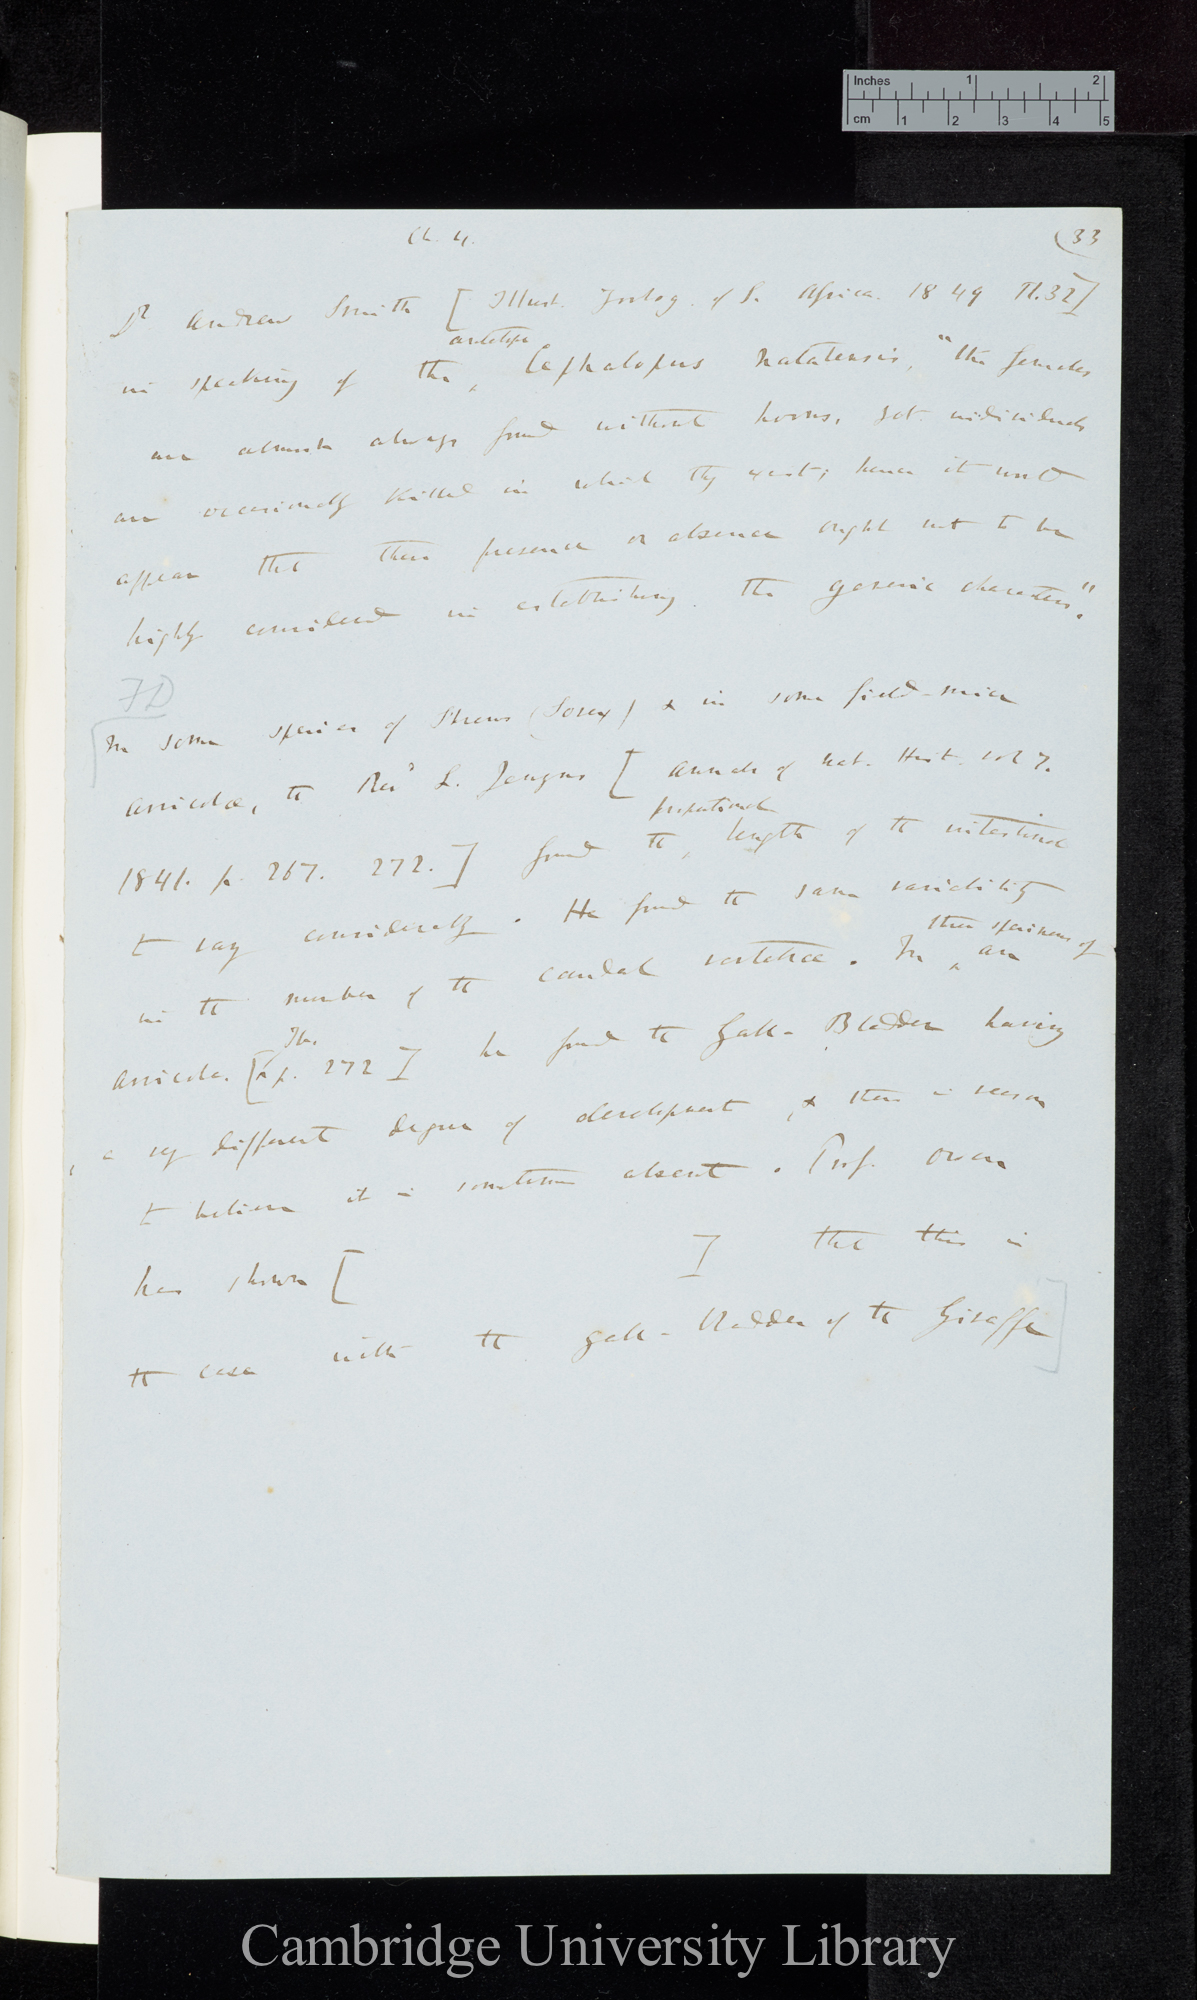 Inches 1 2
cm 1 2 3 4 5
Ch. 4.
(33
Dr Andrew Smith [Illust. Zoolog. of S. Africa. 1849 Pl. 32]
antelope
in speaking of the, Cephalopus natalensis, "the females
are almost always found without horns, yet individuals
are occasionally killed in which they exist; hence it would
appear that their presence or absence ought not to be
highly considered in establishing the generic characters."
FD
In some species of Shrews (Sorex) & in some field-mice
arvicolæ, the Revd L. Jenyns [Annals of Nat. Hist. vol 7.
proportional
1841. p. 267. 272.] found the, length of the intestinal
to vary considerably. He found the same variability
three specimens of
in the number of the caudal vertebræ. In ^ an
Ibn
arvicola. [^ p. 272] he found the gall-Bladder having
a very different degree of development, & there is reason
to believe it is sometimes absent. Prof. Owen
has shown [ ] that this is
the case with the gall-bladder of the Giraffe]
Cambridge University Library